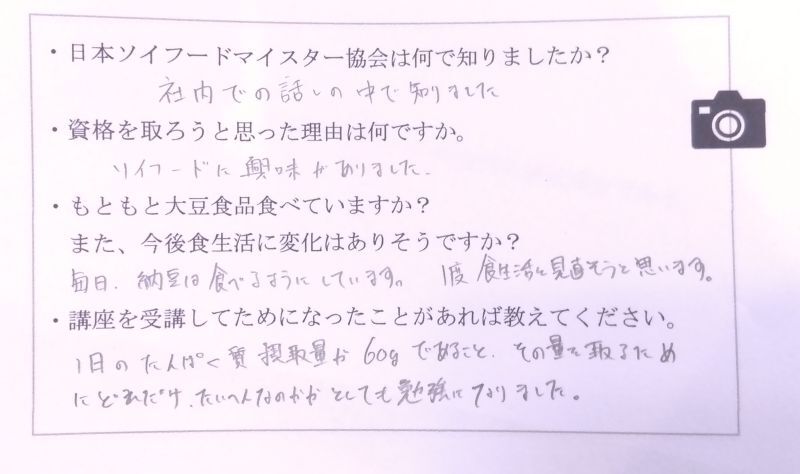 ・日本ソイフードマイスター協会は何で知りましたか？
社内での話しの中で知りました
・資格を取ろうと思った理由は何ですか。
ソイフードに興味がありました.
・もともと大豆食品食べていますか？
また、今後食生活に変化はありそうですか？
毎日、納豆は食べるようにしています。 1度食生活を見直そうと思います。
・講座を受講してためになったことがあれば教えてください。
1日のたんぱく質摂取量が60gであること、その量を取るため
にどれだけ、たいへんなのかがとても勉強になりました。